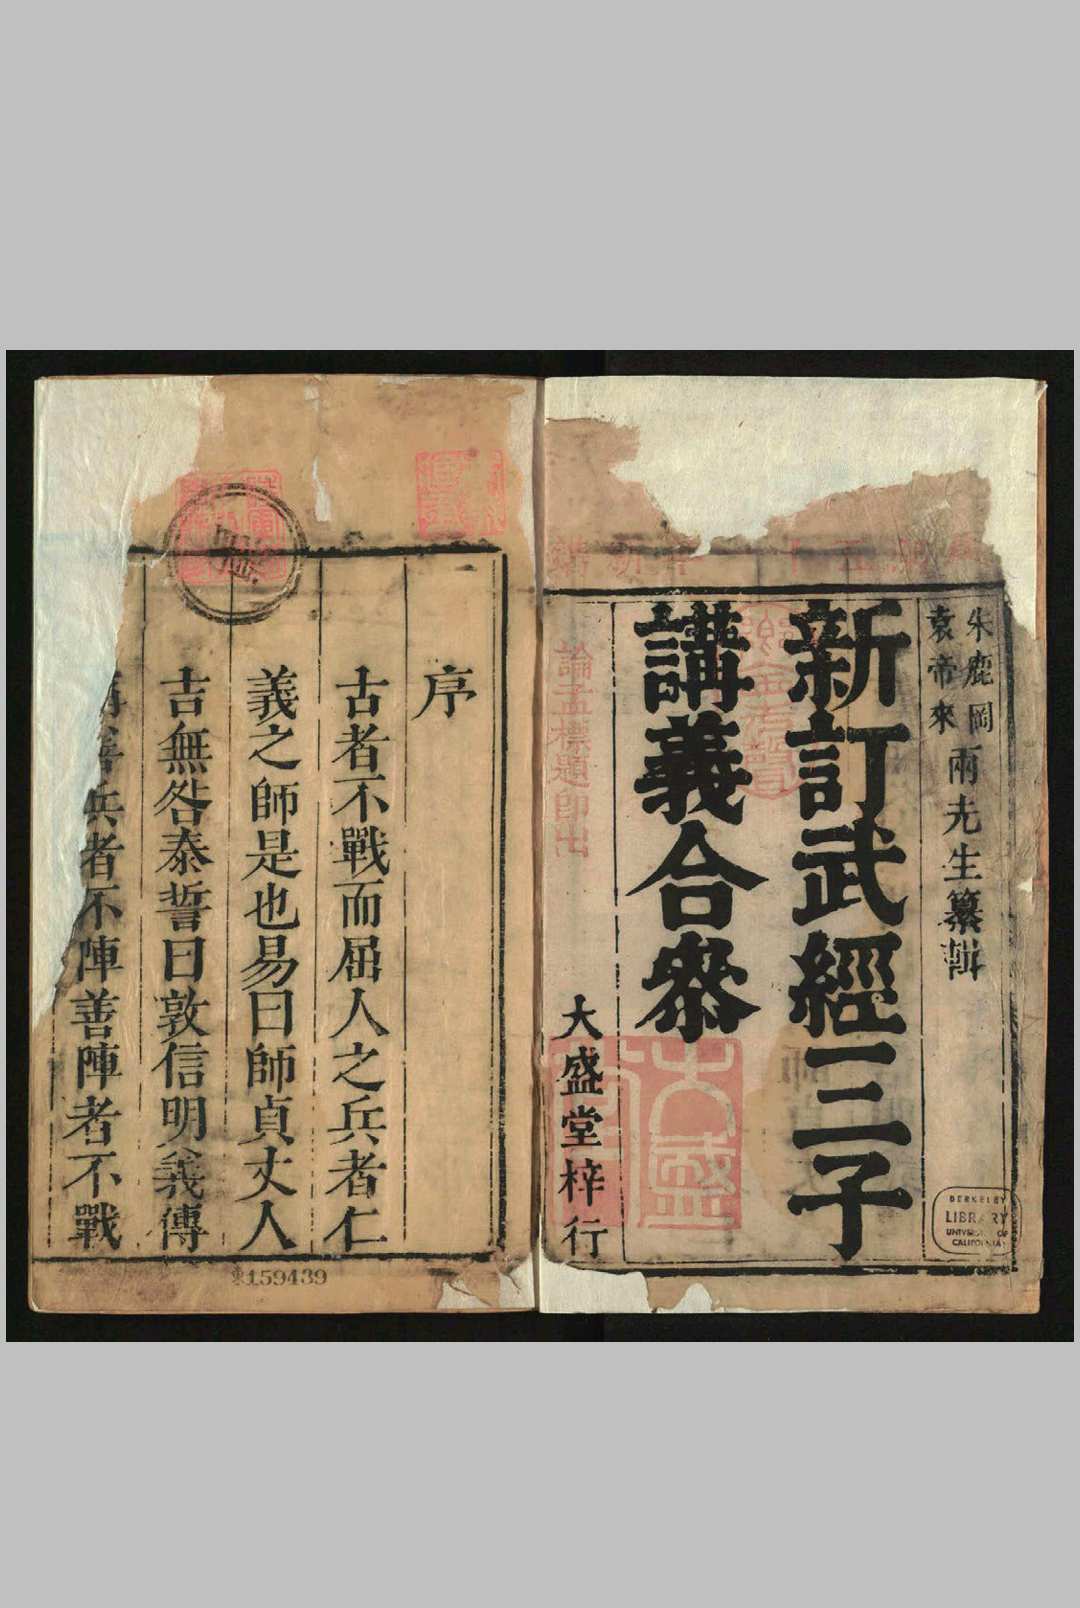 朱鹿岡
袁帝來
兩先生纂輯
新訂武經三子
講義合叅
論孟標題即出
大盛堂梓行
大盛
BERKELEY
LIBRARY
UNIVERSITY OF
CALIFORNIA
序
古者不戰而屈人之兵者仁
義之師是也易曰師貞丈人
吉無咎泰誓曰敦信明義傳
善兵者不陣善陣者不戰
159439